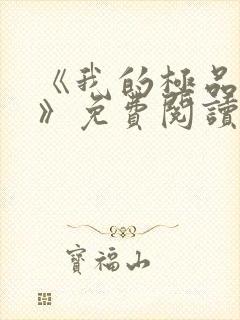 《我的極品
》免費閱讀
寶福山